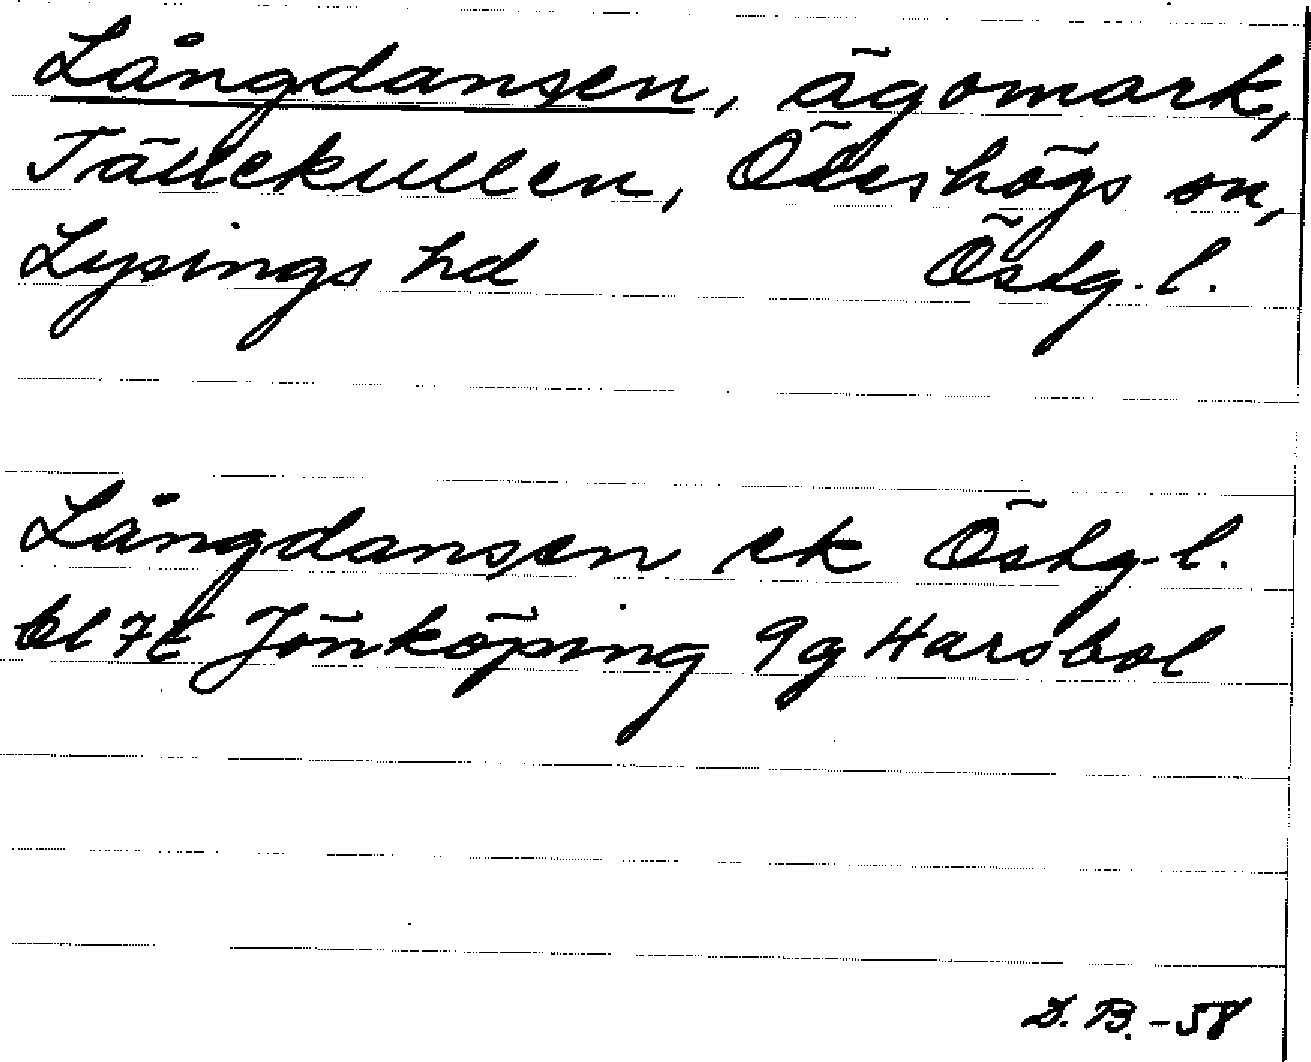 Långdansen, ägomark,
Tällekullen, Ödeshögs sn,
Lysings hd Östg. l.
Långdansen ek Östg. l.
bl 7E Jönköping 9g Harsbol
D. B. -58